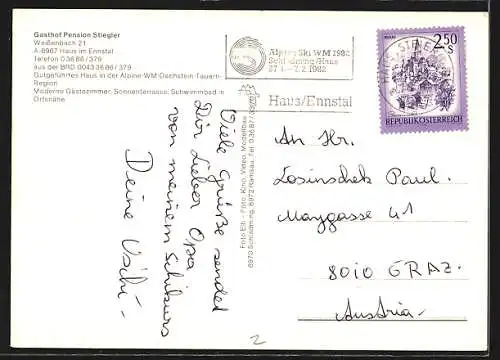 Gasthof Pension Stiegler
Weißenbach 21
A-8967 Haus im Ennstal
Telefon 0 36 86 / 379
aus der BRD 0043 36 86 / 379
Gutgeführtes Haus in der Alpine-WM-Dachstein-Tauern-
Region
Moderne Gästezimmer, Sonnenterrasse, Schwimmbad in
Ortsnähe
Alpine Ski WM 1982
Schladming/Haus
27.1.–7.2.1982
Haus/Ennstal
MURAU
2.50
S
REPUBLIK ÖSTERREICH
Viele Grüße sendet
Dir lieber Opa
von meinem Schikurs
Deine Uschi -
Foto Elfi - Foto, Kino, Video, Modellbau
8970 Schladming, 8972 Ramsau, Tel. 0 36 87
An Hr.
Losinschek Paul.
Mayggasse 41
8010 GRAZ.
Austria
2